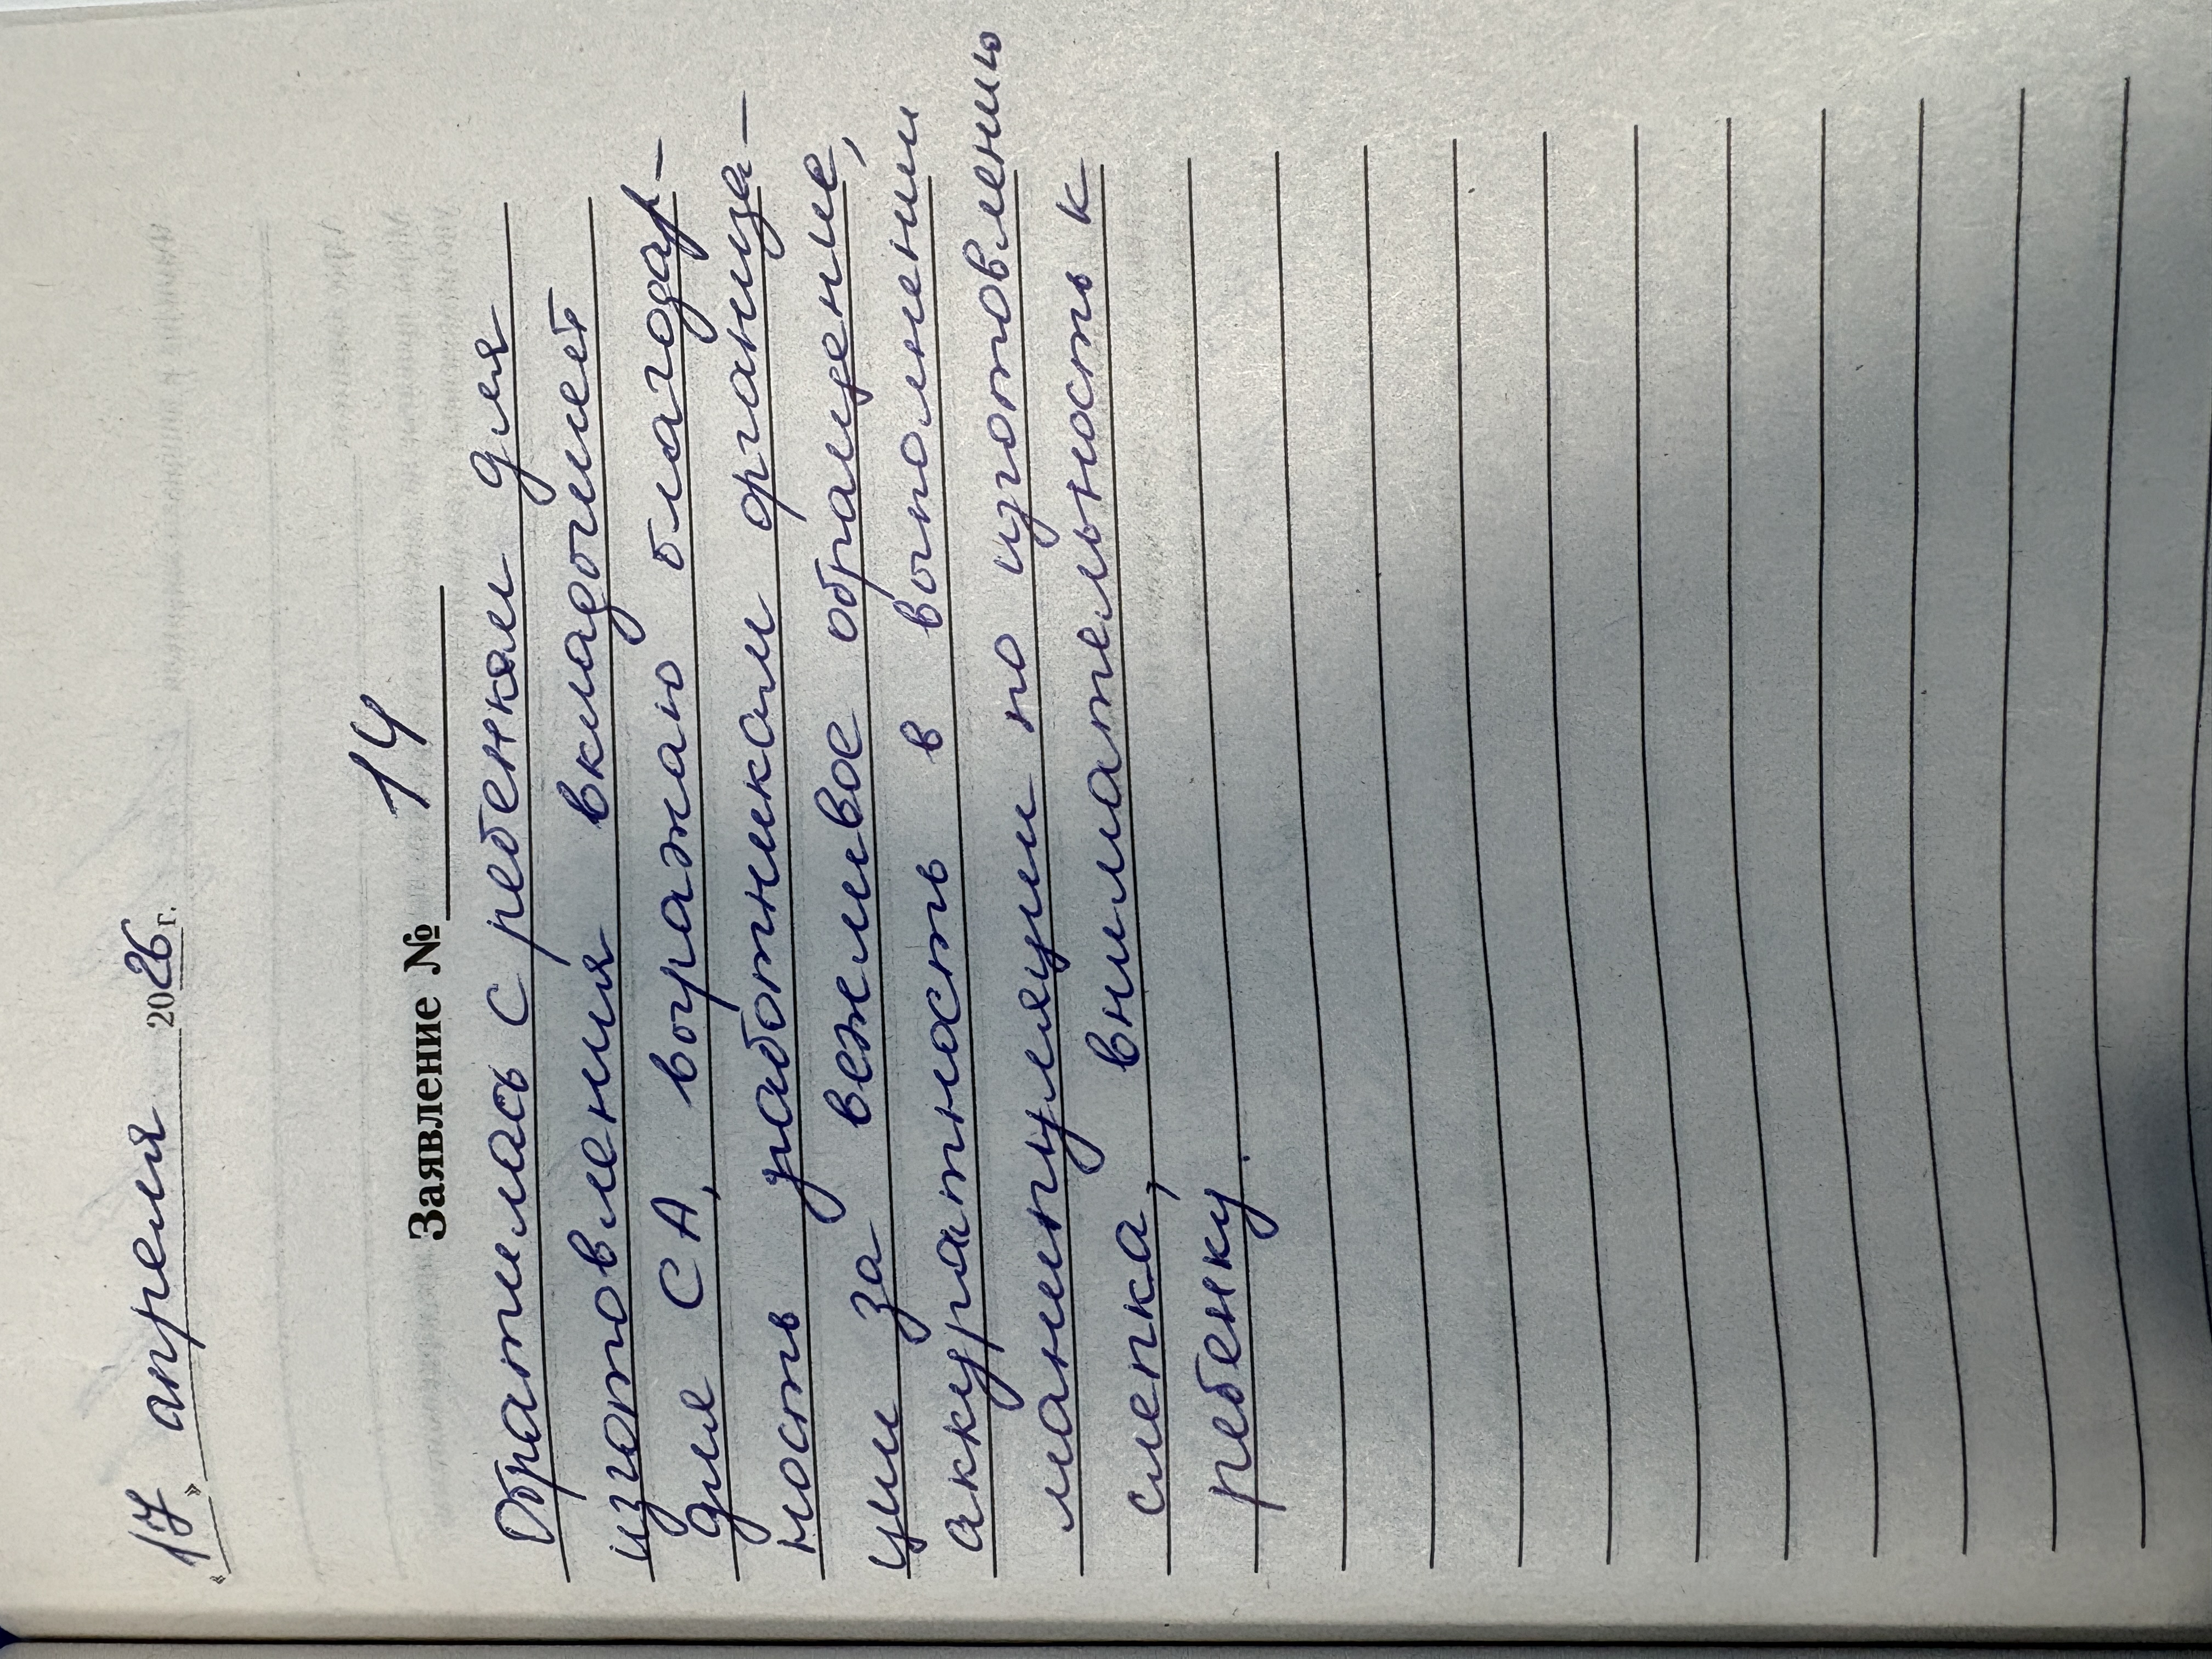 «17» апреля 2026 г.
Заявление № 14
Обратилась с ребенком для
изготовления вкладышей
для СА, выражаю благодар-
ность работникам организа-
ции за вежливое обращение,
аккуратность в выполнении
манипуляции по изготовлению
слепка, внимательность к
ребенку.